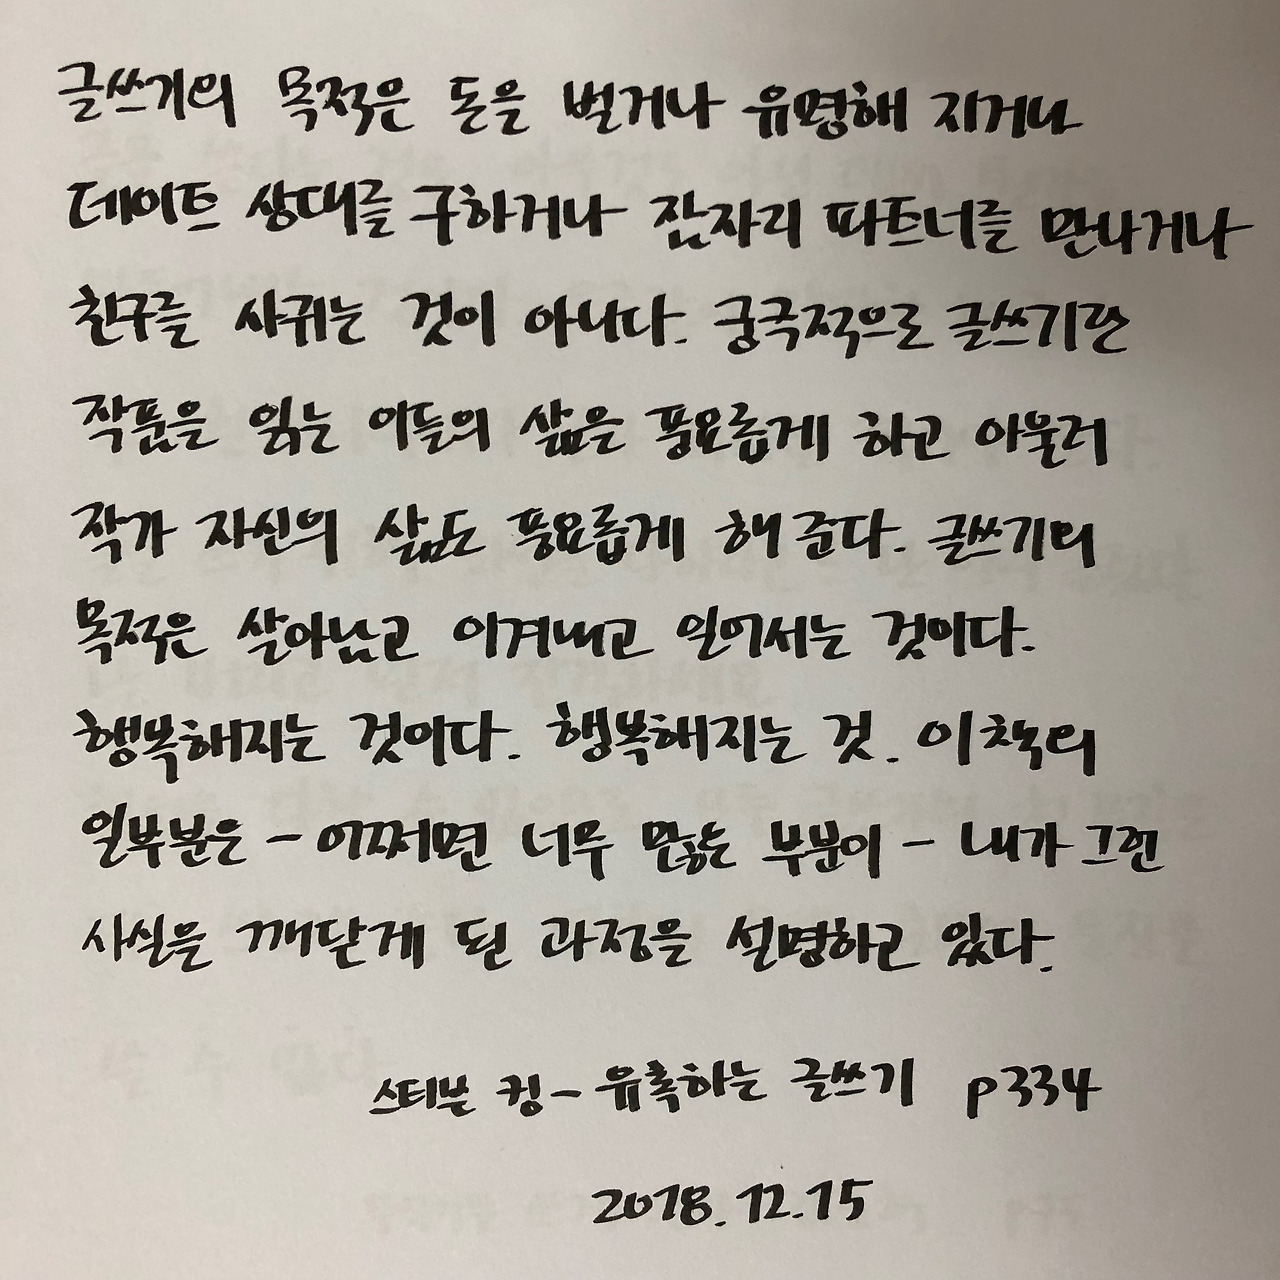 글쓰기의 목적은 돈을 벌거나 유명해 지거나
데이트 상대를 구하거나 잠자리 파트너를 만나거나
친구를 사귀는 것이 아니다. 궁극적으로 글쓰기란
작품을 읽는 이들의 삶을 풍요롭게 하고 아울러
작가 자신의 삶도 풍요롭게 해 준다. 글쓰기의
목적은 살아남고 이겨내고 일어서는 것이다.
행복해지는 것이다. 행복해지는 것. 이 책의
일부분은 - 어쩌면 너무 많은 부분이 - 내가 그런
사실을 깨닫게 된 과정을 설명하고 있다.
스티븐 킹 - 유혹하는 글쓰기 p334
2018.12.15